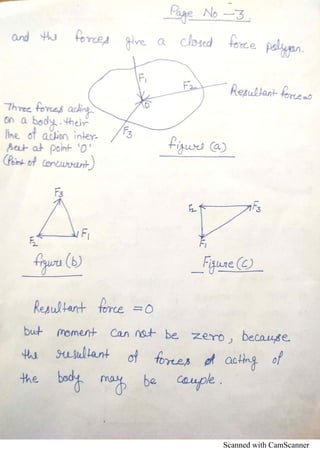 Page No -3.
and the forces give a closed force polygon.
F1
F2
Resultant force=0
Three forces acting
on a body. their
line of action inter-
sect at point 'O'
(Point of concurrent)
O
F3
figure (a)
F3
F2
F1
figure (b)
F2
F3
F1
Figure (c)
Resultant force = 0
but moment can not be zero, because
the resultant of forces of acting of
the body may be couple.
Scanned with CamScanner